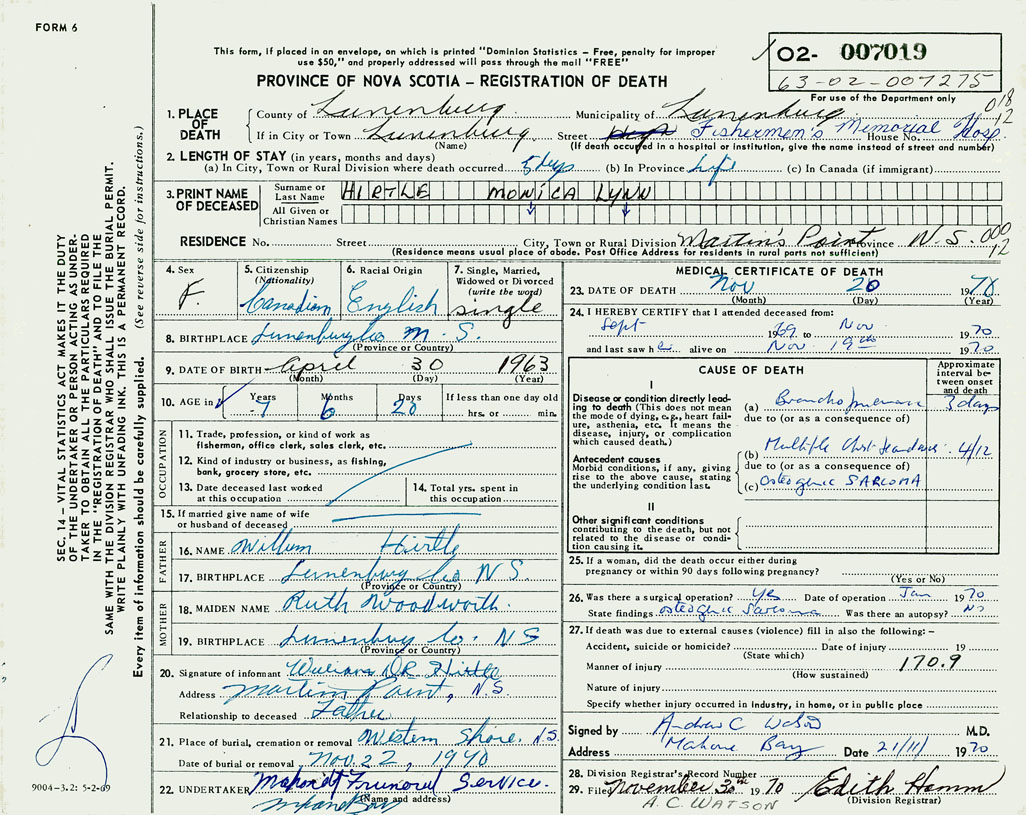 FORM 6
This form, if placed in an envelope, on which is printed "Dominion Statistics – Free, penalty for improper
use $50," and properly addressed will pass through the mail "FREE"
PROVINCE OF NOVA SCOTIA – REGISTRATION OF DEATH
02- 007019
63-02-007275
For use of the Department only
018
12
1. PLACE OF DEATH
County of Lunenburg Municipality of Lunenburg
If in City or Town Lunenburg Street Fishermen's Memorial Hosp. House No.
(Name) (If death occurred in a hospital or institution, give the name instead of street and number)
2. LENGTH OF STAY (in years, months and days)
(a) In City, Town or Rural Division where death occurred 5 days (b) In Province life (c) In Canada (if immigrant)
3. PRINT NAME OF DECEASED
Surname or Last Name HIRTLE MONICA LYNN
All Given or Christian Names
RESIDENCE No. Street City, Town or Rural Division Martin's Point Province N.S. 000
12
(Residence means usual place of abode. Post Office Address for residents in rural parts not sufficient)
4. Sex F.
5. Citizenship (Nationality) Canadian
6. Racial Origin English
7. Single, Married, Widowed or Divorced (write the word) single
8. BIRTHPLACE Lunenburg Co N.S.
(Province or Country)
9. DATE OF BIRTH April 30 1963
(Month) (Day) (Year)
10. AGE in Years 7 Months 6 Days 20 If less than one day old
hrs. or min.
OCCUPATION
11. Trade, profession, or kind of work as
fisherman, office clerk, sales clerk, etc.
12. Kind of industry or business, as fishing,
bank, grocery store, etc.
13. Date deceased last worked
at this occupation
14. Total yrs. spent in
this occupation
15. If married give name of wife
or husband of deceased
FATHER
16. NAME William Hirtle
17. BIRTHPLACE Lunenburg Co NS
(Province or Country)
MOTHER
18. MAIDEN NAME Ruth Woodworth.
19. BIRTHPLACE Lunenburg Co. NS
(Province or Country)
20. Signature of informant William Hirtle
Address Martins Point, N.S.
Relationship to deceased Father
21. Place of burial, cremation or removal Western Shore. N.S.
Date of burial or removal Nov. 22, 1970
22. UNDERTAKER Funeral Service.
(Name and address)
MEDICAL CERTIFICATE OF DEATH
23. DATE OF DEATH Nov 20 1970
(Month) (Day) (Year)
24. I HEREBY CERTIFY that I attended deceased from:
Sept 1969 to Nov 1970
and last saw her alive on Nov. 19th 1970
CAUSE OF DEATH
Approximate interval between onset and death
I
Disease or condition directly leading to death (This does not mean the mode of dying, e.g., heart failure, asthenia, etc. It means the disease, injury, or complication which caused death.)
(a) Bronchopneumonia 3 days
due to (or as a consequence of)
Antecedent causes
Morbid conditions, if any, giving rise to the above cause, stating the underlying condition last.
(b) Multiple 4/12
due to (or as a consequence of)
(c) Osteogenic SARCOMA
II
Other significant conditions
contributing to the death, but not related to the disease or condition causing it.
25. If a woman, did the death occur either during
pregnancy or within 90 days following pregnancy?
(Yes or No)
26. Was there a surgical operation? yes Date of operation Jan 1970
State findings osteogenic Sarcoma Was there an autopsy? No
27. If death was due to external causes (violence) fill in also the following: –
Accident, suicide or homicide? Date of injury 19
(State which)
Manner of injury 170.9
(How sustained)
Nature of injury
Specify whether injury occurred in industry, in home, or in public place
Signed by Andrew C Watson M.D.
Address Mahone Bay Date 21/11/ 1970
28. Division Registrar's Record Number
29. Filed November 30th 1970 Edith Hamm
(Division Registrar)
A.C. WATSON
SEC. 14 – VITAL STATISTICS ACT MAKES IT THE DUTY
OF THE UNDERTAKER OR PERSON ACTING AS UNDER-
TAKER TO OBTAIN ALL THE PARTICULARS REQUIRED
IN THE "REGISTRATION OF DEATH" AND TO FILE THE
SAME WITH THE DIVISION REGISTRAR WHO SHALL ISSUE THE BURIAL PERMIT.
WRITE PLAINLY WITH UNFADING INK. THIS IS A PERMANENT RECORD.
Every item of information should be carefully supplied. (See reverse side for instructions.)
9004-3.2: 5-2-69